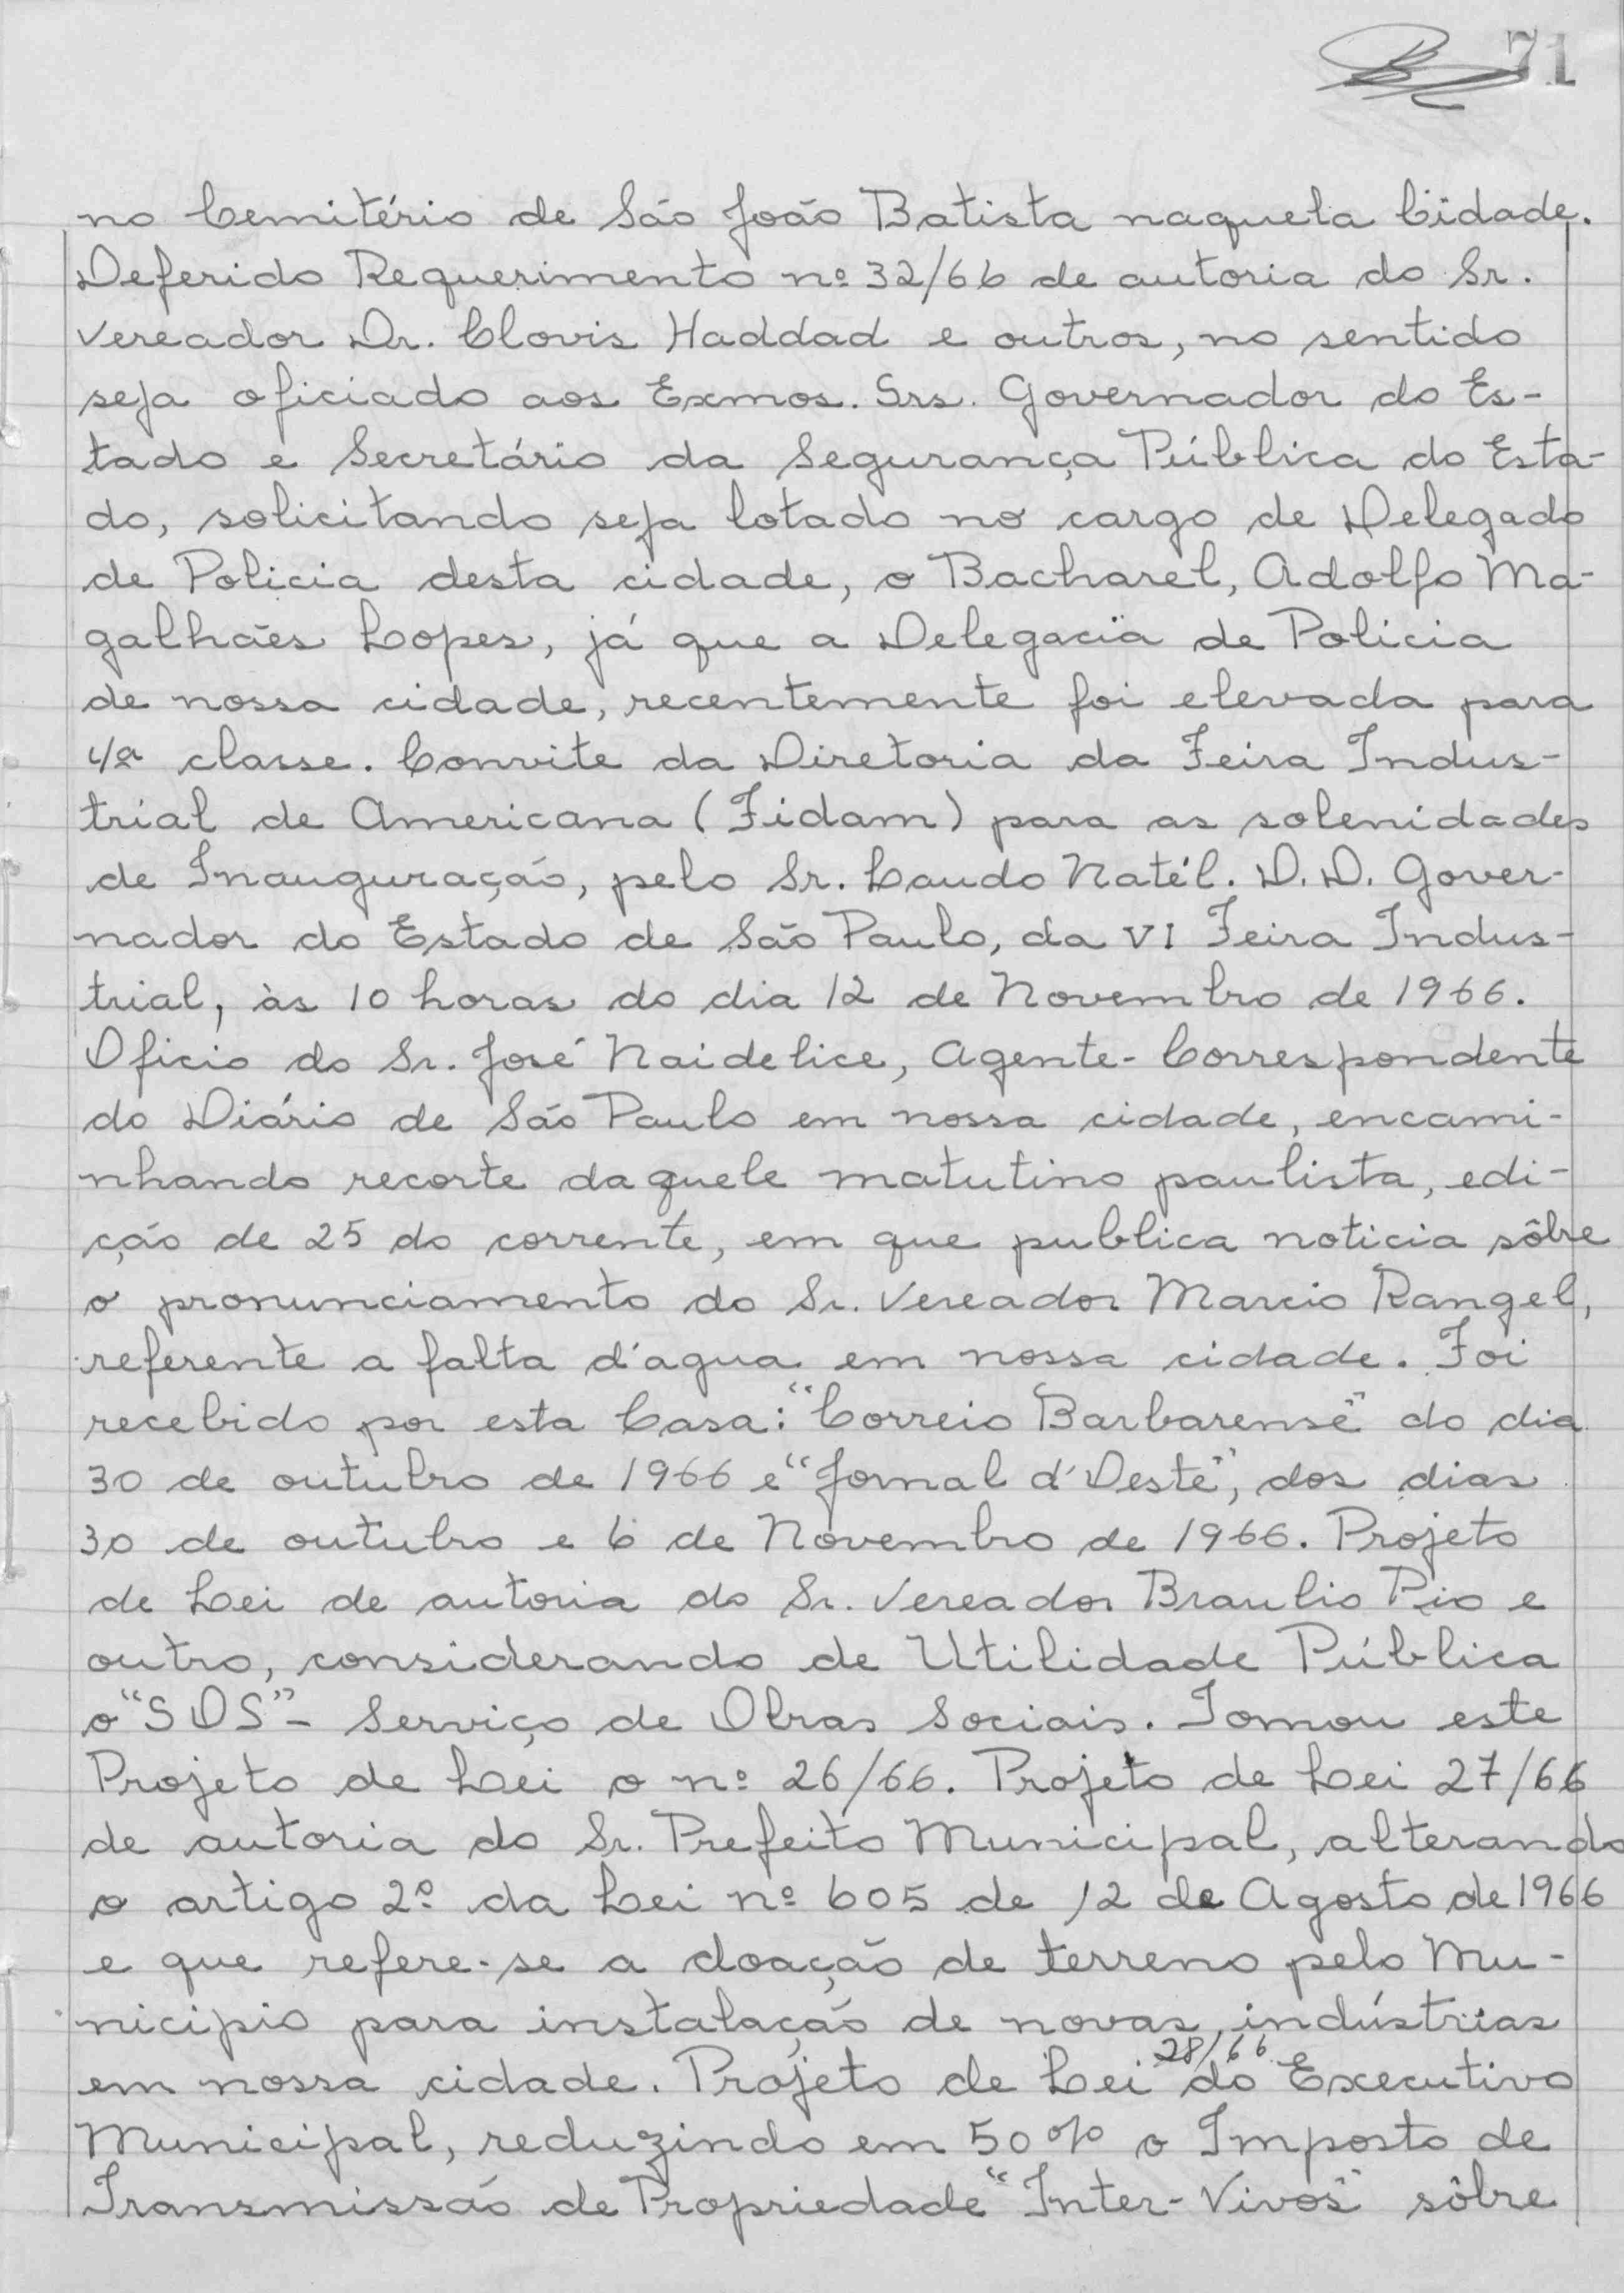 71
no Cemitério de São João Batista naquela Cidade.
Deferido Requerimento nº 32/66 de autoria do Sr.
Vereador Dr. Clovis Haddad e outros, no sentido
seja oficiado aos Exmos. Srs. Governador do Es-
tado e Secretário da Segurança Pública do Esta-
do, solicitando seja lotado no cargo de Delegado
de Policia desta cidade, o Bacharel, Adolfo Ma-
galhães Lopes, já que a Delegacia de Policia
de nossa cidade, recentemente foi elevada para
4ª classe. Convite da Diretoria da Feira Indus-
trial de Americana (Fidam) para as solenidades
de Inauguração, pelo Sr. Laudo Natél. D.D. Gover-
nador do Estado de São Paulo, da VI Feira Indus-
trial, às 10 horas do dia 12 de Novembro de 1966.
Oficio do Sr. José Naidelice, Agente-Correspondente
do Diário de São Paulo em nossa cidade, encami-
nhando recorte daquele matutino paulista, edi-
ção de 25 do corrente, em que publica noticia sôbre
o pronunciamento do Sr. Vereador Marcio Rangel,
referente a falta d'agua em nossa cidade. Foi
recebido por esta Casa: "Correio Barbarense" do dia
30 de outubro de 1966 e "Jornal d'Oeste", dos dias
30 de outubro e 6 de Novembro de 1966. Projeto
de Lei de autoria do Sr. Vereador Braulio Pio e
outro, considerando de Utilidade Pública
o "SOS" - Serviço de Obras Sociais. Tomou este
Projeto de Lei o nº 26/66. Projeto de Lei 27/66
de autoria do Sr. Prefeito Municipal, alterando
o artigo 2º da Lei nº 605 de 12 de Agosto de 1966
e que refere-se a doação de terreno pelo Mu-
nicipio para instalação de novas indústrias
em nossa cidade. Projeto de Lei 28/66 do Executivo
Municipal, reduzindo em 50% o Imposto de
Transmissão de Propriedade "Inter-Vivos" sôbre